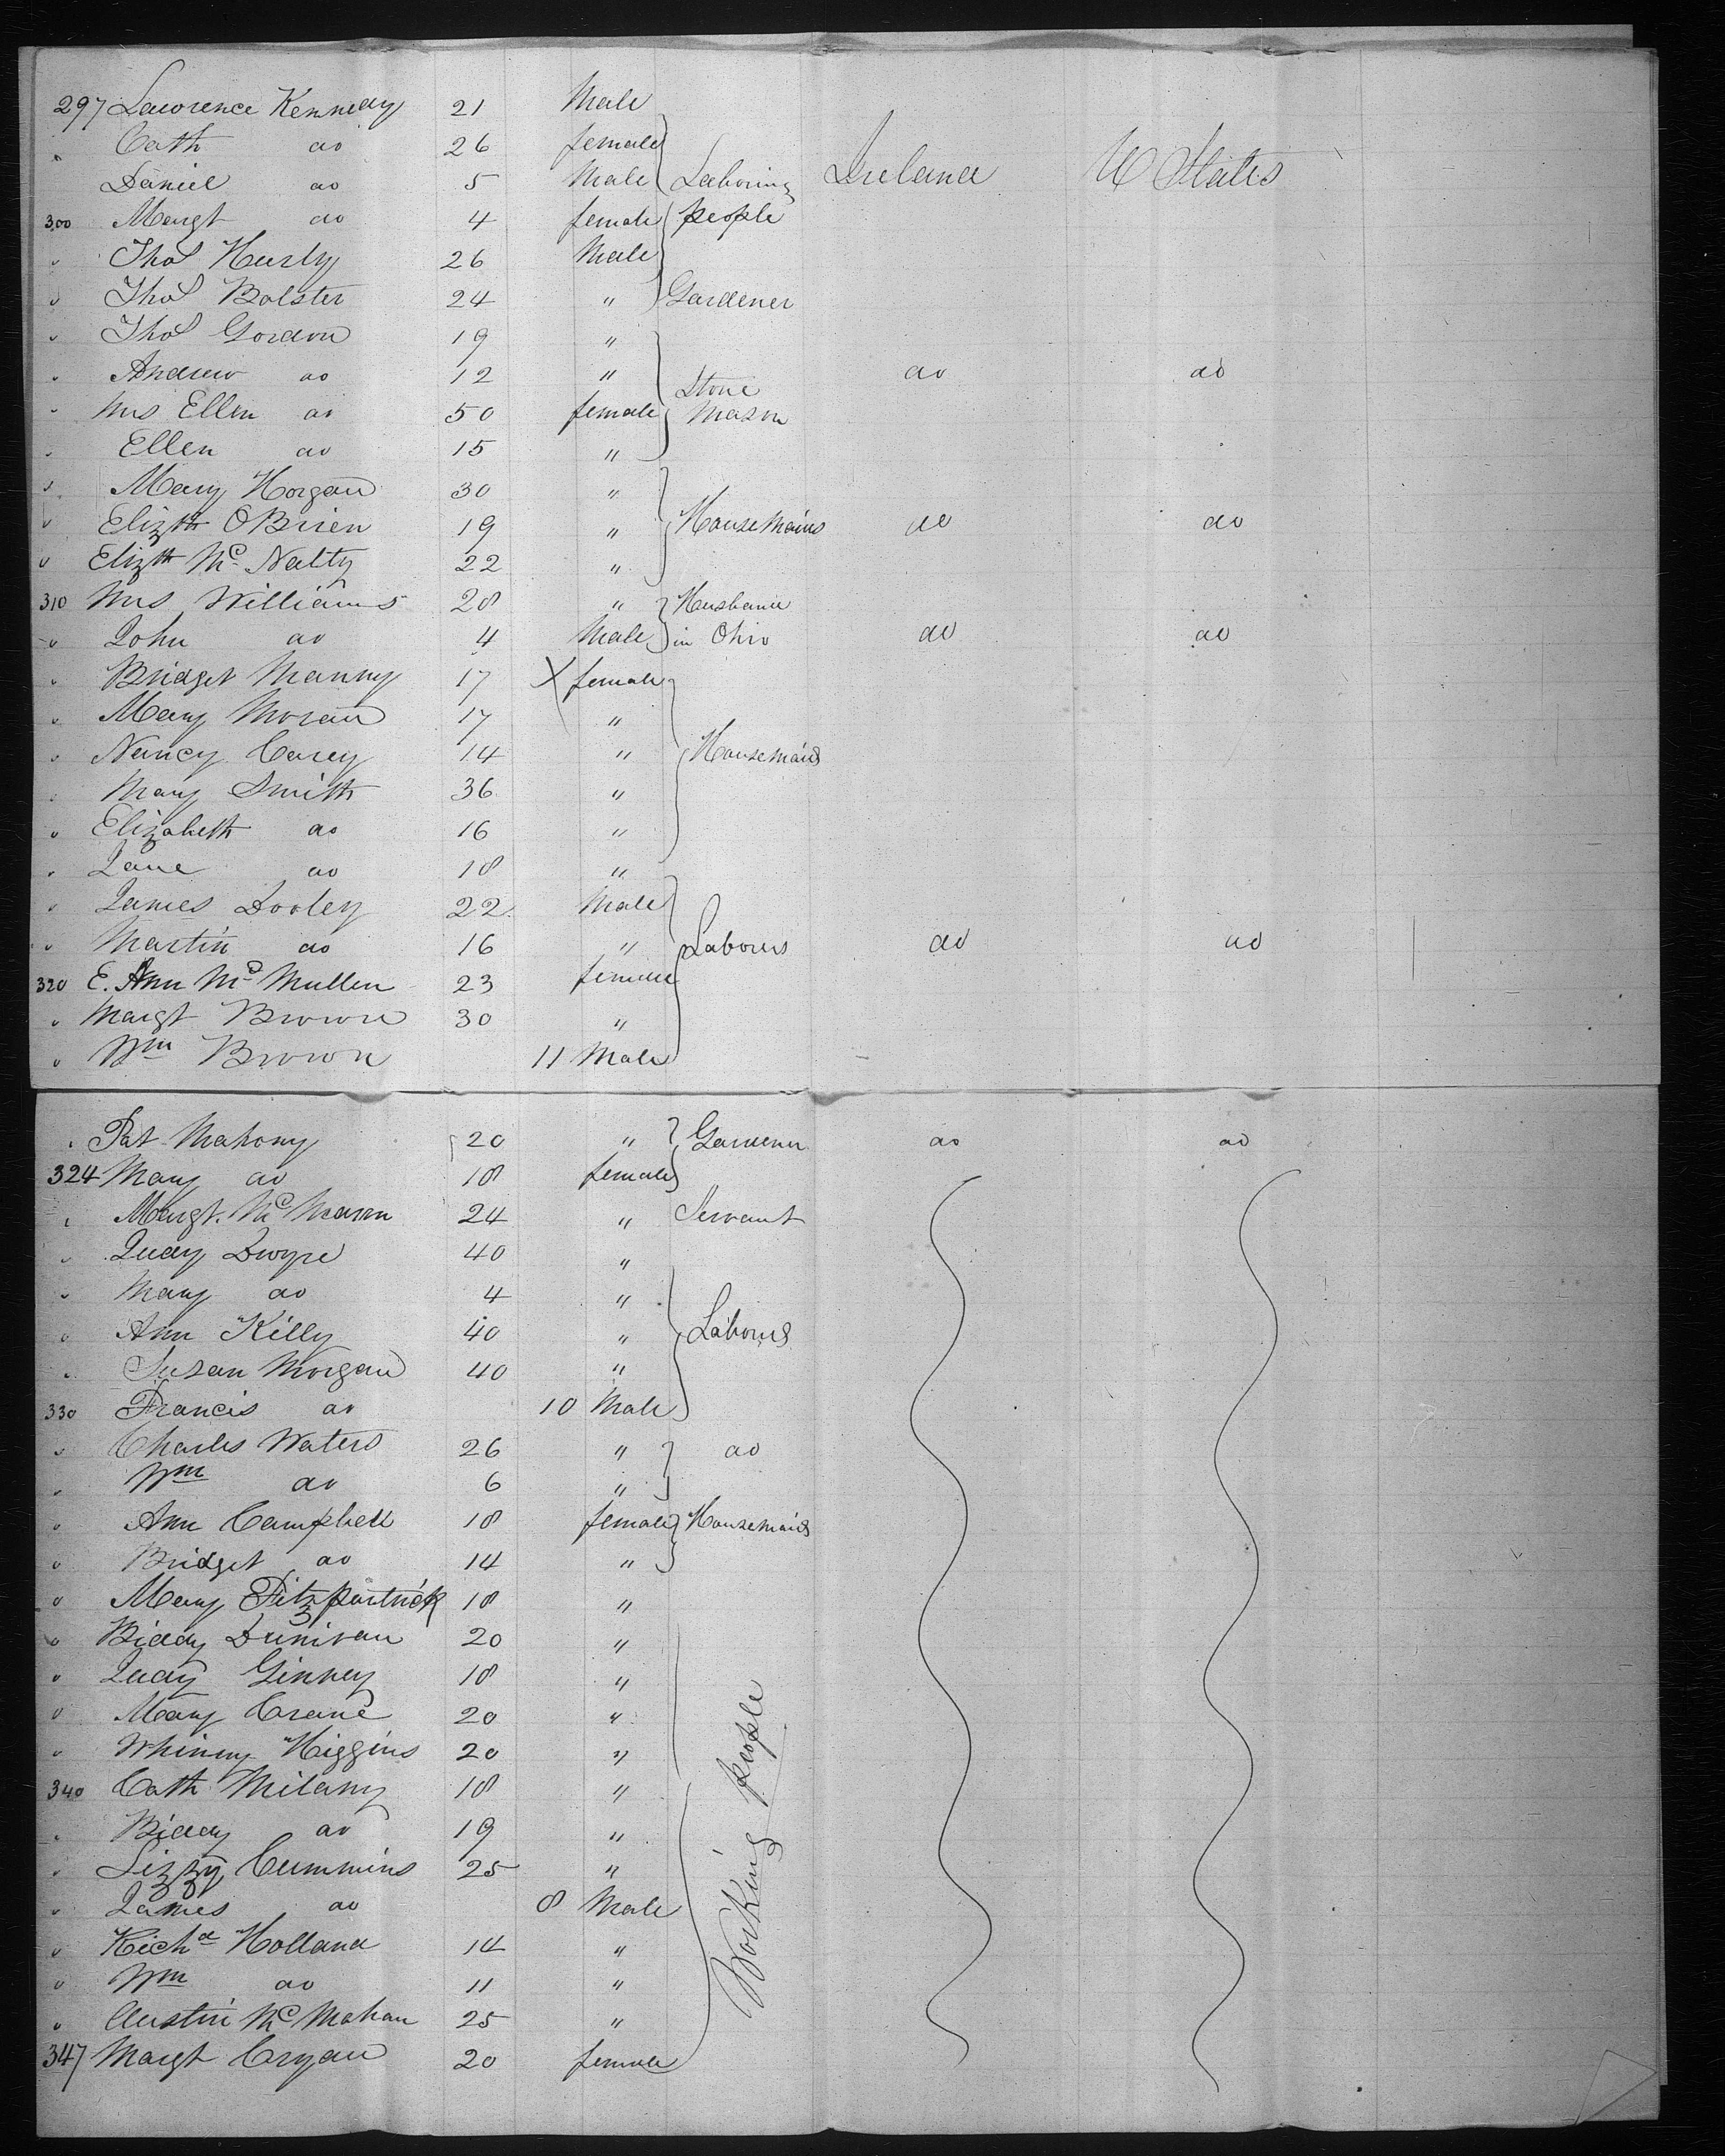 297 Lawrence Kennedy 21 Male
" Cath do 26 female
Daniel do 5 Male Laboring Ireland U States
300 Margt do 4 female people
" Thos Hurly 26 Male
" Thos Bolster 24 " Gardener
" Thos Gordon 19 "
" Andrew do 12 " do do
Stone
" Mrs Ellen do 50 female Mason
" Ellen do 15 "
" Mary Horgan 30 "
" Elizth OBrien 19 " Housemaids do do
" Elizth Mc Nalty 22 "
310 Mrs Williams 28 " Husband
" John do 4 Male in Ohio do do
" Bridget Manny 17 X female
" Mary Moran 17 "
" Nancy Carey 14 " Housemaids
" Mary Smith 36 "
" Elizabeth do 16 "
" Jane do 18 "
" James Dooley 22 Male
" Martin do 16 " Laborers do do
320 E. Ann Mc Mullen 23 female
" Margt Brown 30 "
" Wm Brown 11 Male
" Pat Mahony 20 " Gardener do do
324 Mary do 18 female
" Margt. Mc 24 " Servant
" Judy Dwyre 40 "
" Mary do 4 "
" Ann Killy 40 " Laborers
" Susan Morgan 40 "
330 Francis do 10 Male
" Charles Waters 26 " do
" Wm do 6 "
" Ann Campbell 18 female Housemaids
" Bridget do 14 "
" Mary Fitzpartrick 18 "
" Biddy Dunivan 20 "
" Judy Ginney 18 "
" Mary Crane 20 "
" Whinny Higgins 20 "
340 Cath Milany 18 "
" Biddy do 19 " Working people
" Lizzy Cummins 25 "
" James do 8 Male
" Richd Holland 14 "
" Wm do 11 "
" Austin Mc Mahan 25 "
347 Margt Cryan 20 female